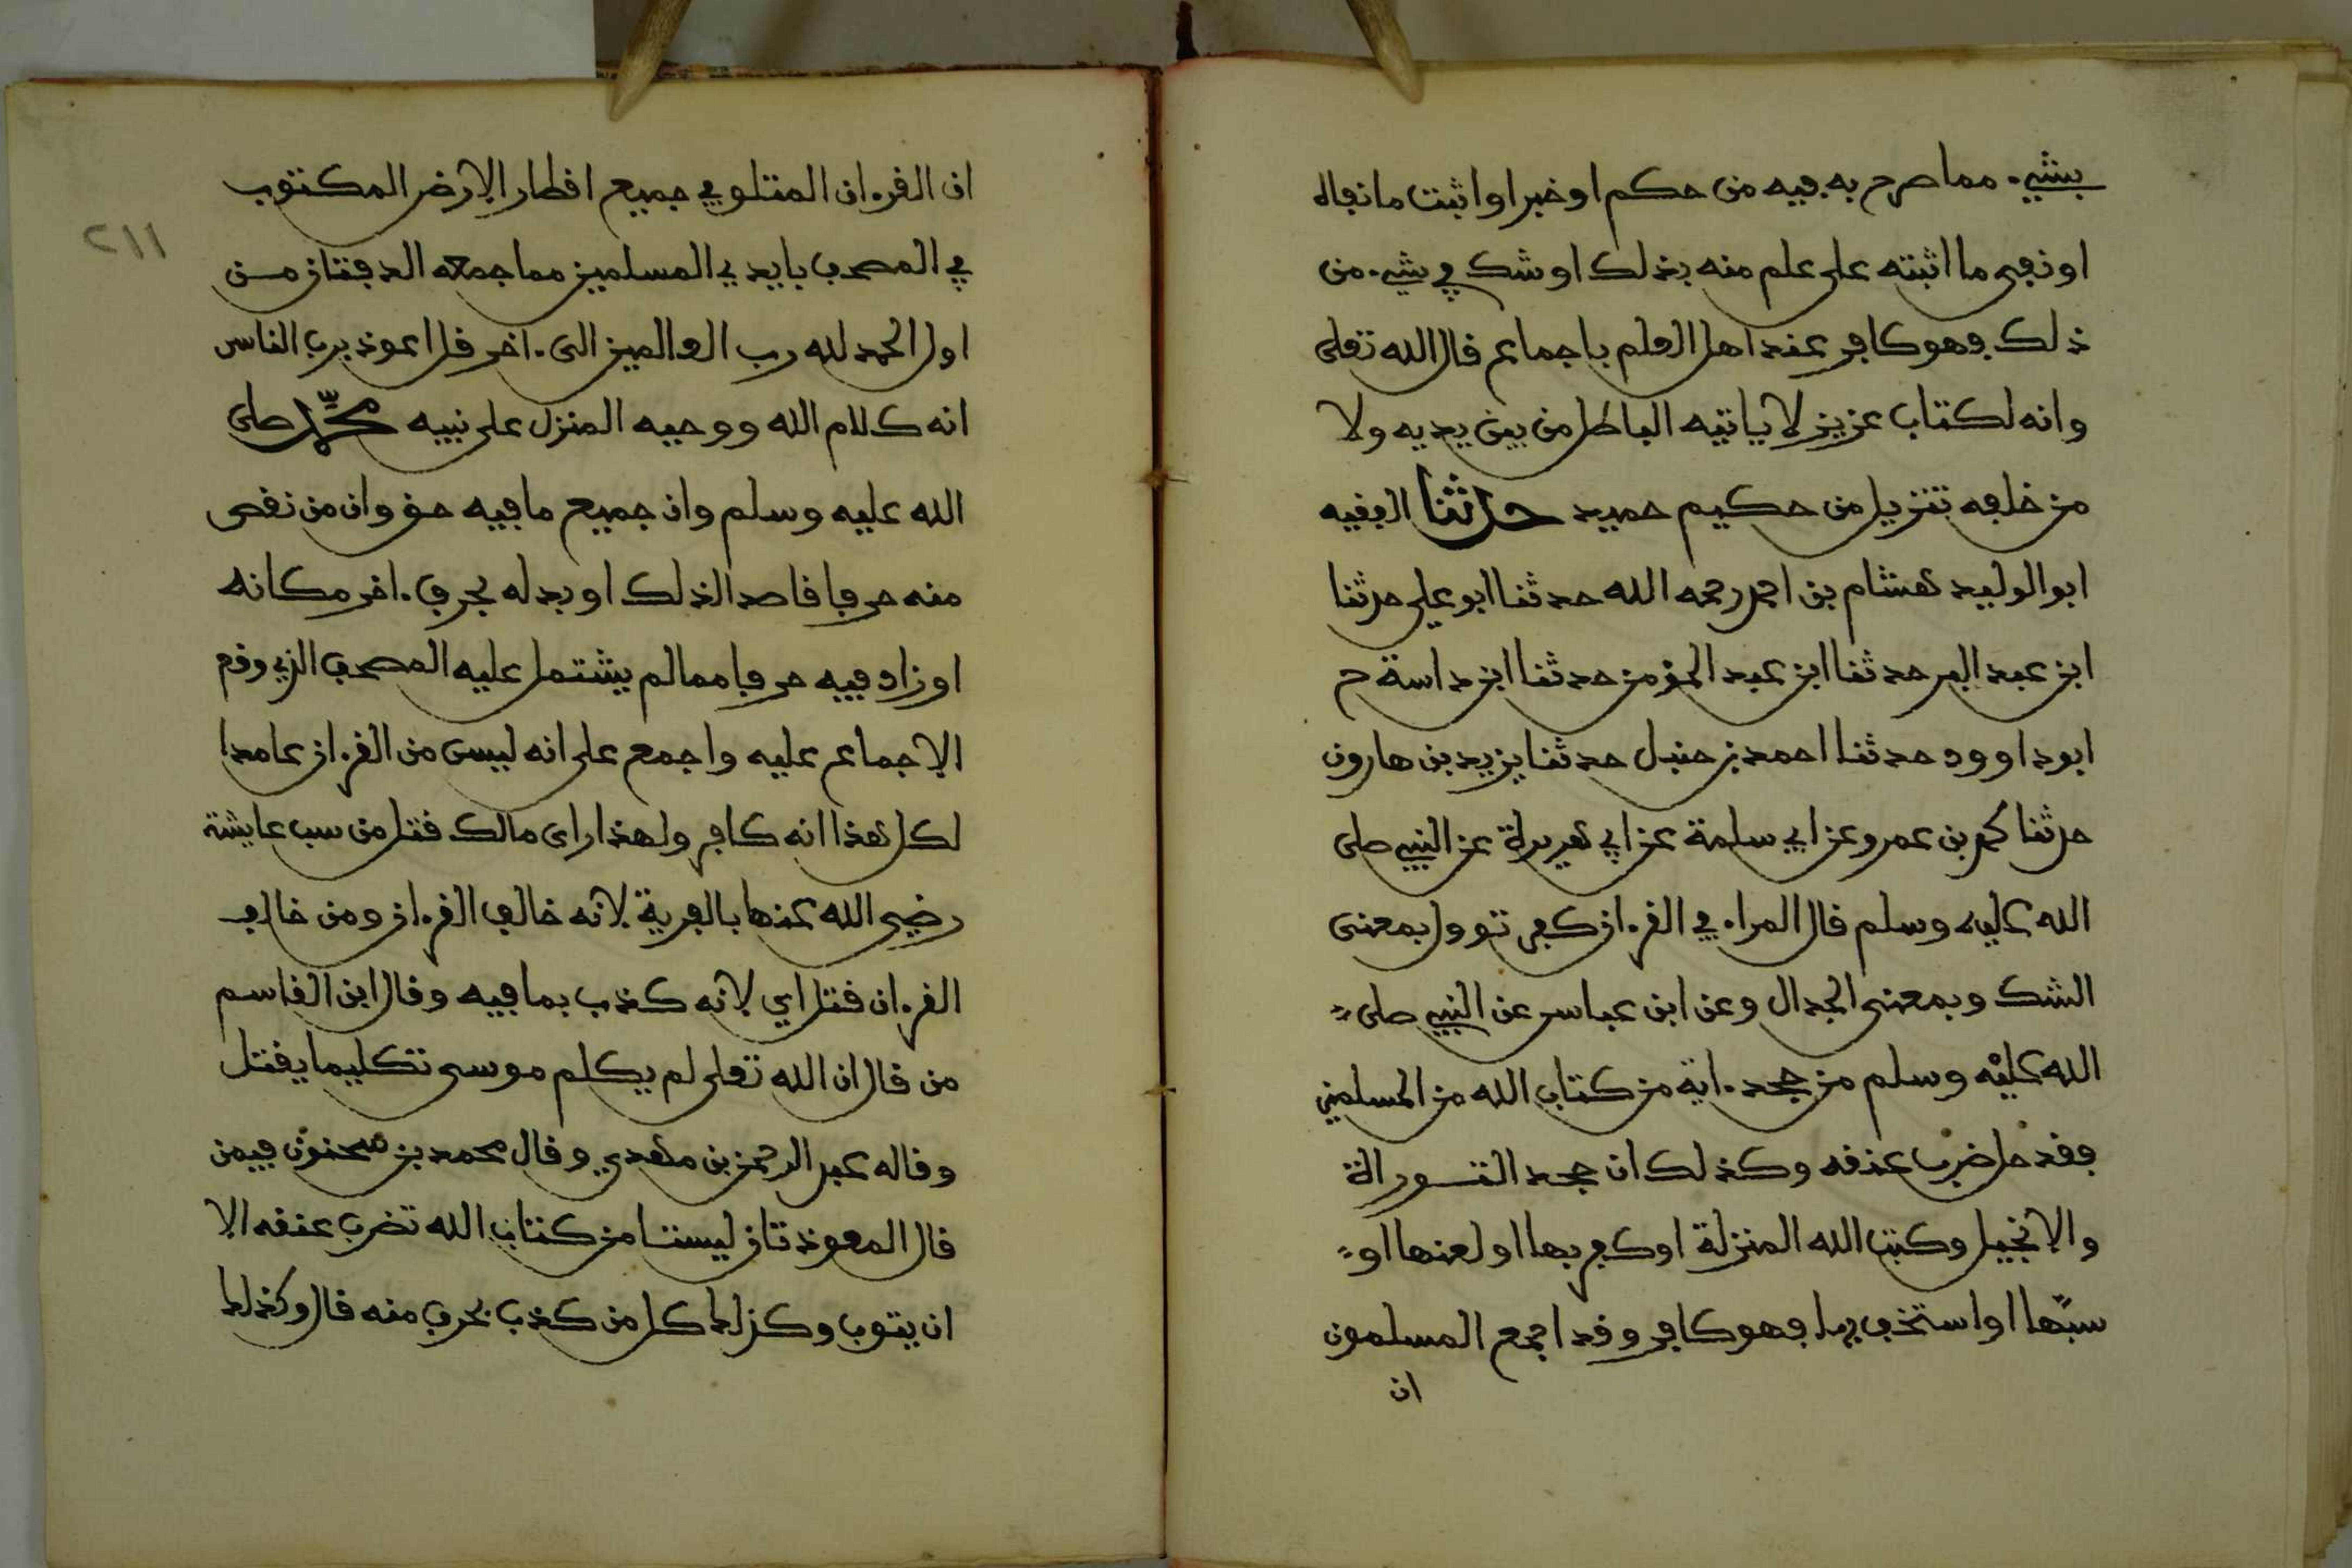 بشيء مما صرح به فيه من حكم او خبر او اثبت ما نفاه
او نفى ما اثبته على علم منه بذلك او شك في شيء من
ذلك فهو كافر عند اهل العلم باجماع قال الله تعلى
وانه لكتاب عزيز لا ياتيه الباطل من بين يديه ولا
من خلفه تنزيل من حكيم حميد حدثنا الفقيه
ابو الوليد هشام بن احمد رحمه الله حدثنا ابو علي حدثنا
ابن عبد البر حدثنا ابن عبد المؤمن حدثنا ابن داسة ح
ابو داوود حدثنا احمد بن حنبل حدثنا يزيد بن هارون
حدثنا محمد بن عمرو عن ابي سلمة عن ابي هريرة عن النبي صلى
الله عليه وسلم قال المراء في القرءان كفر تووول بمعنى
الشك وبمعنى الجدال وعن ابن عباس عن النبي صلى
الله عليه وسلم من جحد ءاية من كتاب الله من المسلمين
فقد حل ضرب عنقه وكذلك ان جحد التوراة
والانجيل وكتب الله المنزلة او كفر بها او لعنها او
سبها او استخف بها فهو كافر وقد اجمع المسلمون
ان
٢١١
ان القرءان المتلو في جميع اقطار الارض المكتوب
في المصحف بايدي المسلمين مما جمعه الدفتان من
اول الحمد لله رب العالمين الى ءاخر قل اعوذ برب الناس
انه كلام الله ووحيه المنزل على نبيه محمد صلى
الله عليه وسلم وان جميع ما فيه حق وان من نقص
منه حرفا قاصدا لذلك او بدله بحرف ءاخر مكانه
او زاد فيه حرفا مما لم يشتمل عليه المصحف الذي وقع
الاجماع عليه واجمع على انه ليس من القرءان عامدا
لكل هذا انه كافر ولهذا راى مالك قتل من سب عايشة
رضي الله عنها بالفرية لانه خالف القرءان ومن خالف
القرءان قتل اي لانه كذب بما فيه وقال ابن القاسم
من قال ان الله تعلى لم يكلم موسى تكليما يقتل
وقاله عبد الرحمن بن مهدي وقال محمد بن سحنون فيمن
قال المعوذتان ليستا من كتاب الله تضرب عنقه الا
ان يتوب وكذلك كل من كذب بحرف منه قال وكذلك